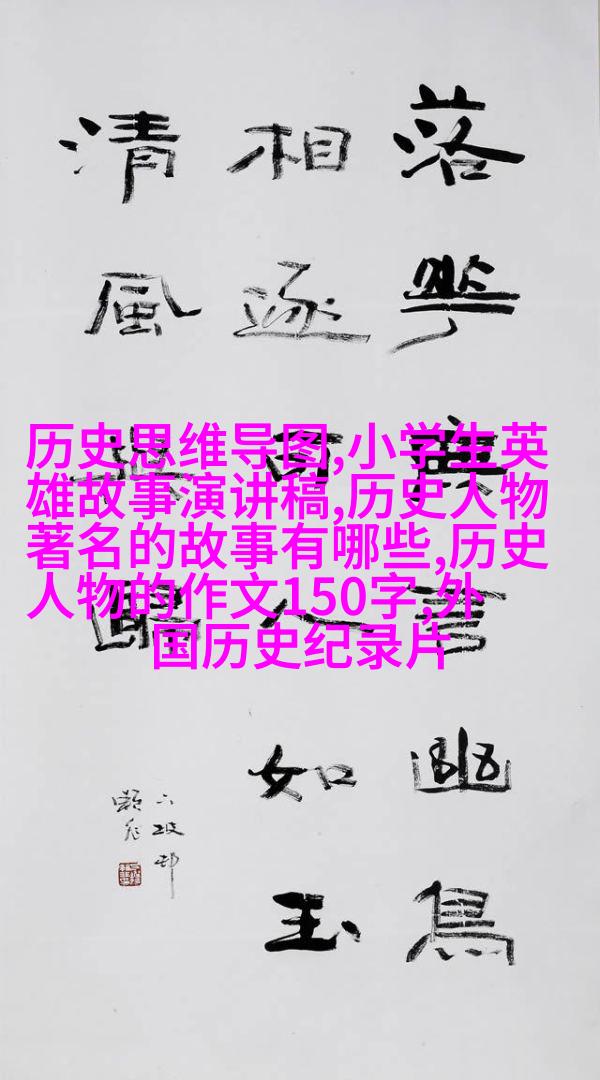 历史思维导图,小学生英
雄故事演讲稿,历史人物
著名的故事有哪些,历史
人物的作文150字,外
国历史纪录片
落華無言幽鳥
相逐可人如玉
清風